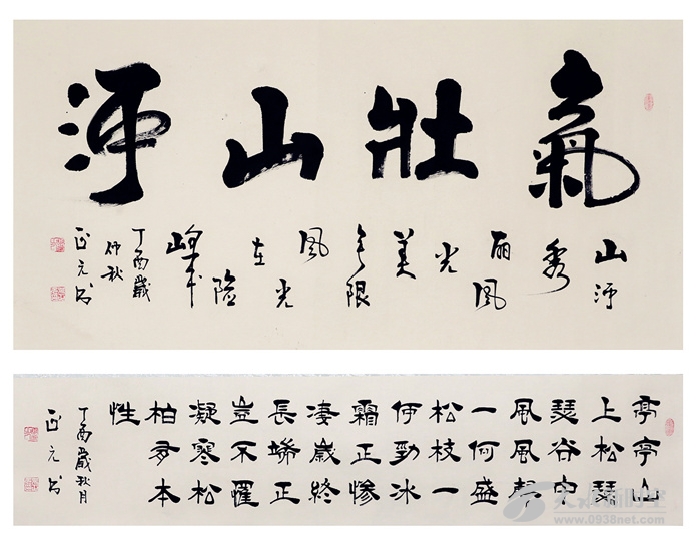 氣壯山河
山河
秀
丽風
光
美
无限
風
光
在
险
峰
丁酉歲
仲秋
正元书
亭亭山
上松瑟
瑟谷中
風風聲
一何盛
松枝一
何勁冰
霜正慘
淒歲終
長端正
豈不罹
凝寒松
柏有本
性
丁酉歲秋月
正元书
天水新时空
www.0938net.com